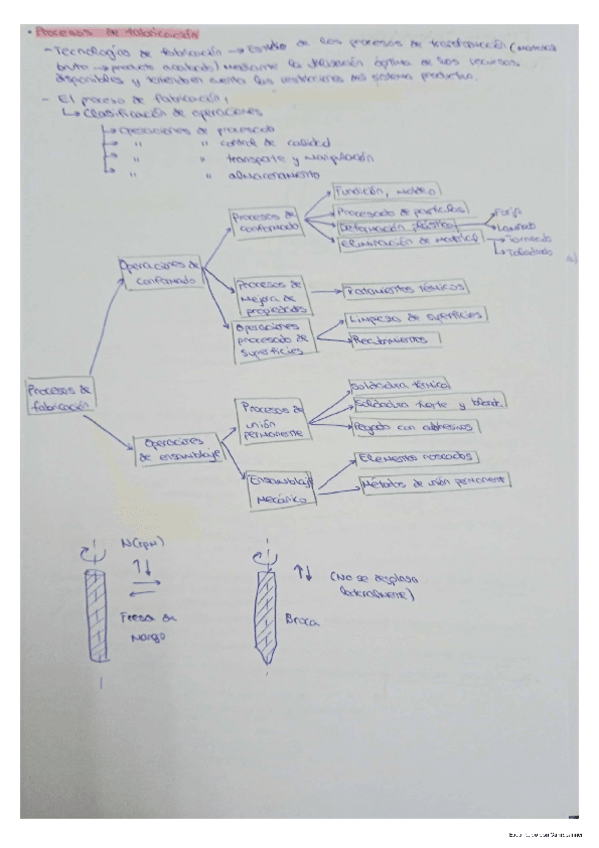 • Procesos de fabricación
- Tecnologías de fabricación → Estudio de los procesos de transformación (material
bruto → producto acabado) mediante la utilización óptima de los recursos
disponibles y teniendo en cuenta las restricciones del sistema productivo.
- El proceso de fabricación,
↳ Clasificación de operaciones
↳ Operaciones de procesado
↳ " " control de calidad
↳ " " transporte y manipulación
↳ " " almacenamiento
Procesos de
fabricación
Operaciones de
conformado
Procesos de
conformado
Fundición, moldeo
Procesado de partículas
Deformación plástica
Forja
Laminado
Eliminación de material
Torneado
Taladrado
Procesos de
mejora de
propiedades
Tratamientos térmicos
Operaciones
procesado de
superficies
Limpieza de superficies
Recubrimientos
Operaciones
de ensamblaje
Procesos de
unión
permanente
Soldadura térmica
Soldadura fuerte y bland.
Pegado con adhesivos
Ensamblaje
mecánico
Elementos roscados
Métodos de unión permanente
N(rpm)
Fresa de
mango
(No se desplaza
lateralmente)
Broca